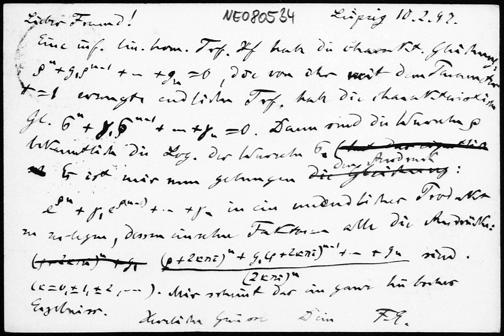 Lieber Freund! NE080524 Leipzig 10.2.92.
Eine inf. lin. hom. Trf. Xf hat die charakt. Gleichung
ρⁿ + g₁ρⁿ⁻¹ + – + gₙ = 0, die von ihr mit dem Parameter
t = 1 erzeugte endliche Trf. hat die charakteristische
Gl. σⁿ + γ₁σⁿ⁻¹ + – + γₙ = 0. Dann sind die Wurzeln ρ
bekanntlich die Log. der Wurzeln σ.
den Ausdruck
Es ist mir nun gelungen die Gleichung:
eρⁿ + γ₁eρ⁽ⁿ⁻¹⁾ + – + γₙ in ein unendliches Produkt
zu zerlegen, dessen einzelne Faktoren alle die Ausdrücke:
(ρ+2κπi)ⁿ + g₁(ρ+2κπi)ⁿ⁻¹ + – + gₙ sind.
(2κπi)ⁿ
(κ=0, ±1, ±2, –). Mir scheint das ein ganz hübsches
Ergebniss.
Herzliche Grüsse Dein F.E.